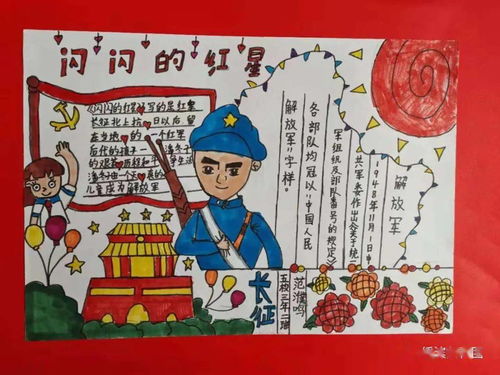 闪闪的红星
《闪闪的红星》写的是红军
长征北上抗日以后留
在当地的一个红军
后代的孩子
儿童成为解放军
解放军
1948年11月1日中
共军委作出《关于统一
军组织及部队番号的规定》
各部队均冠以"中国人民
解放军"字样。
长征
五校三年二班